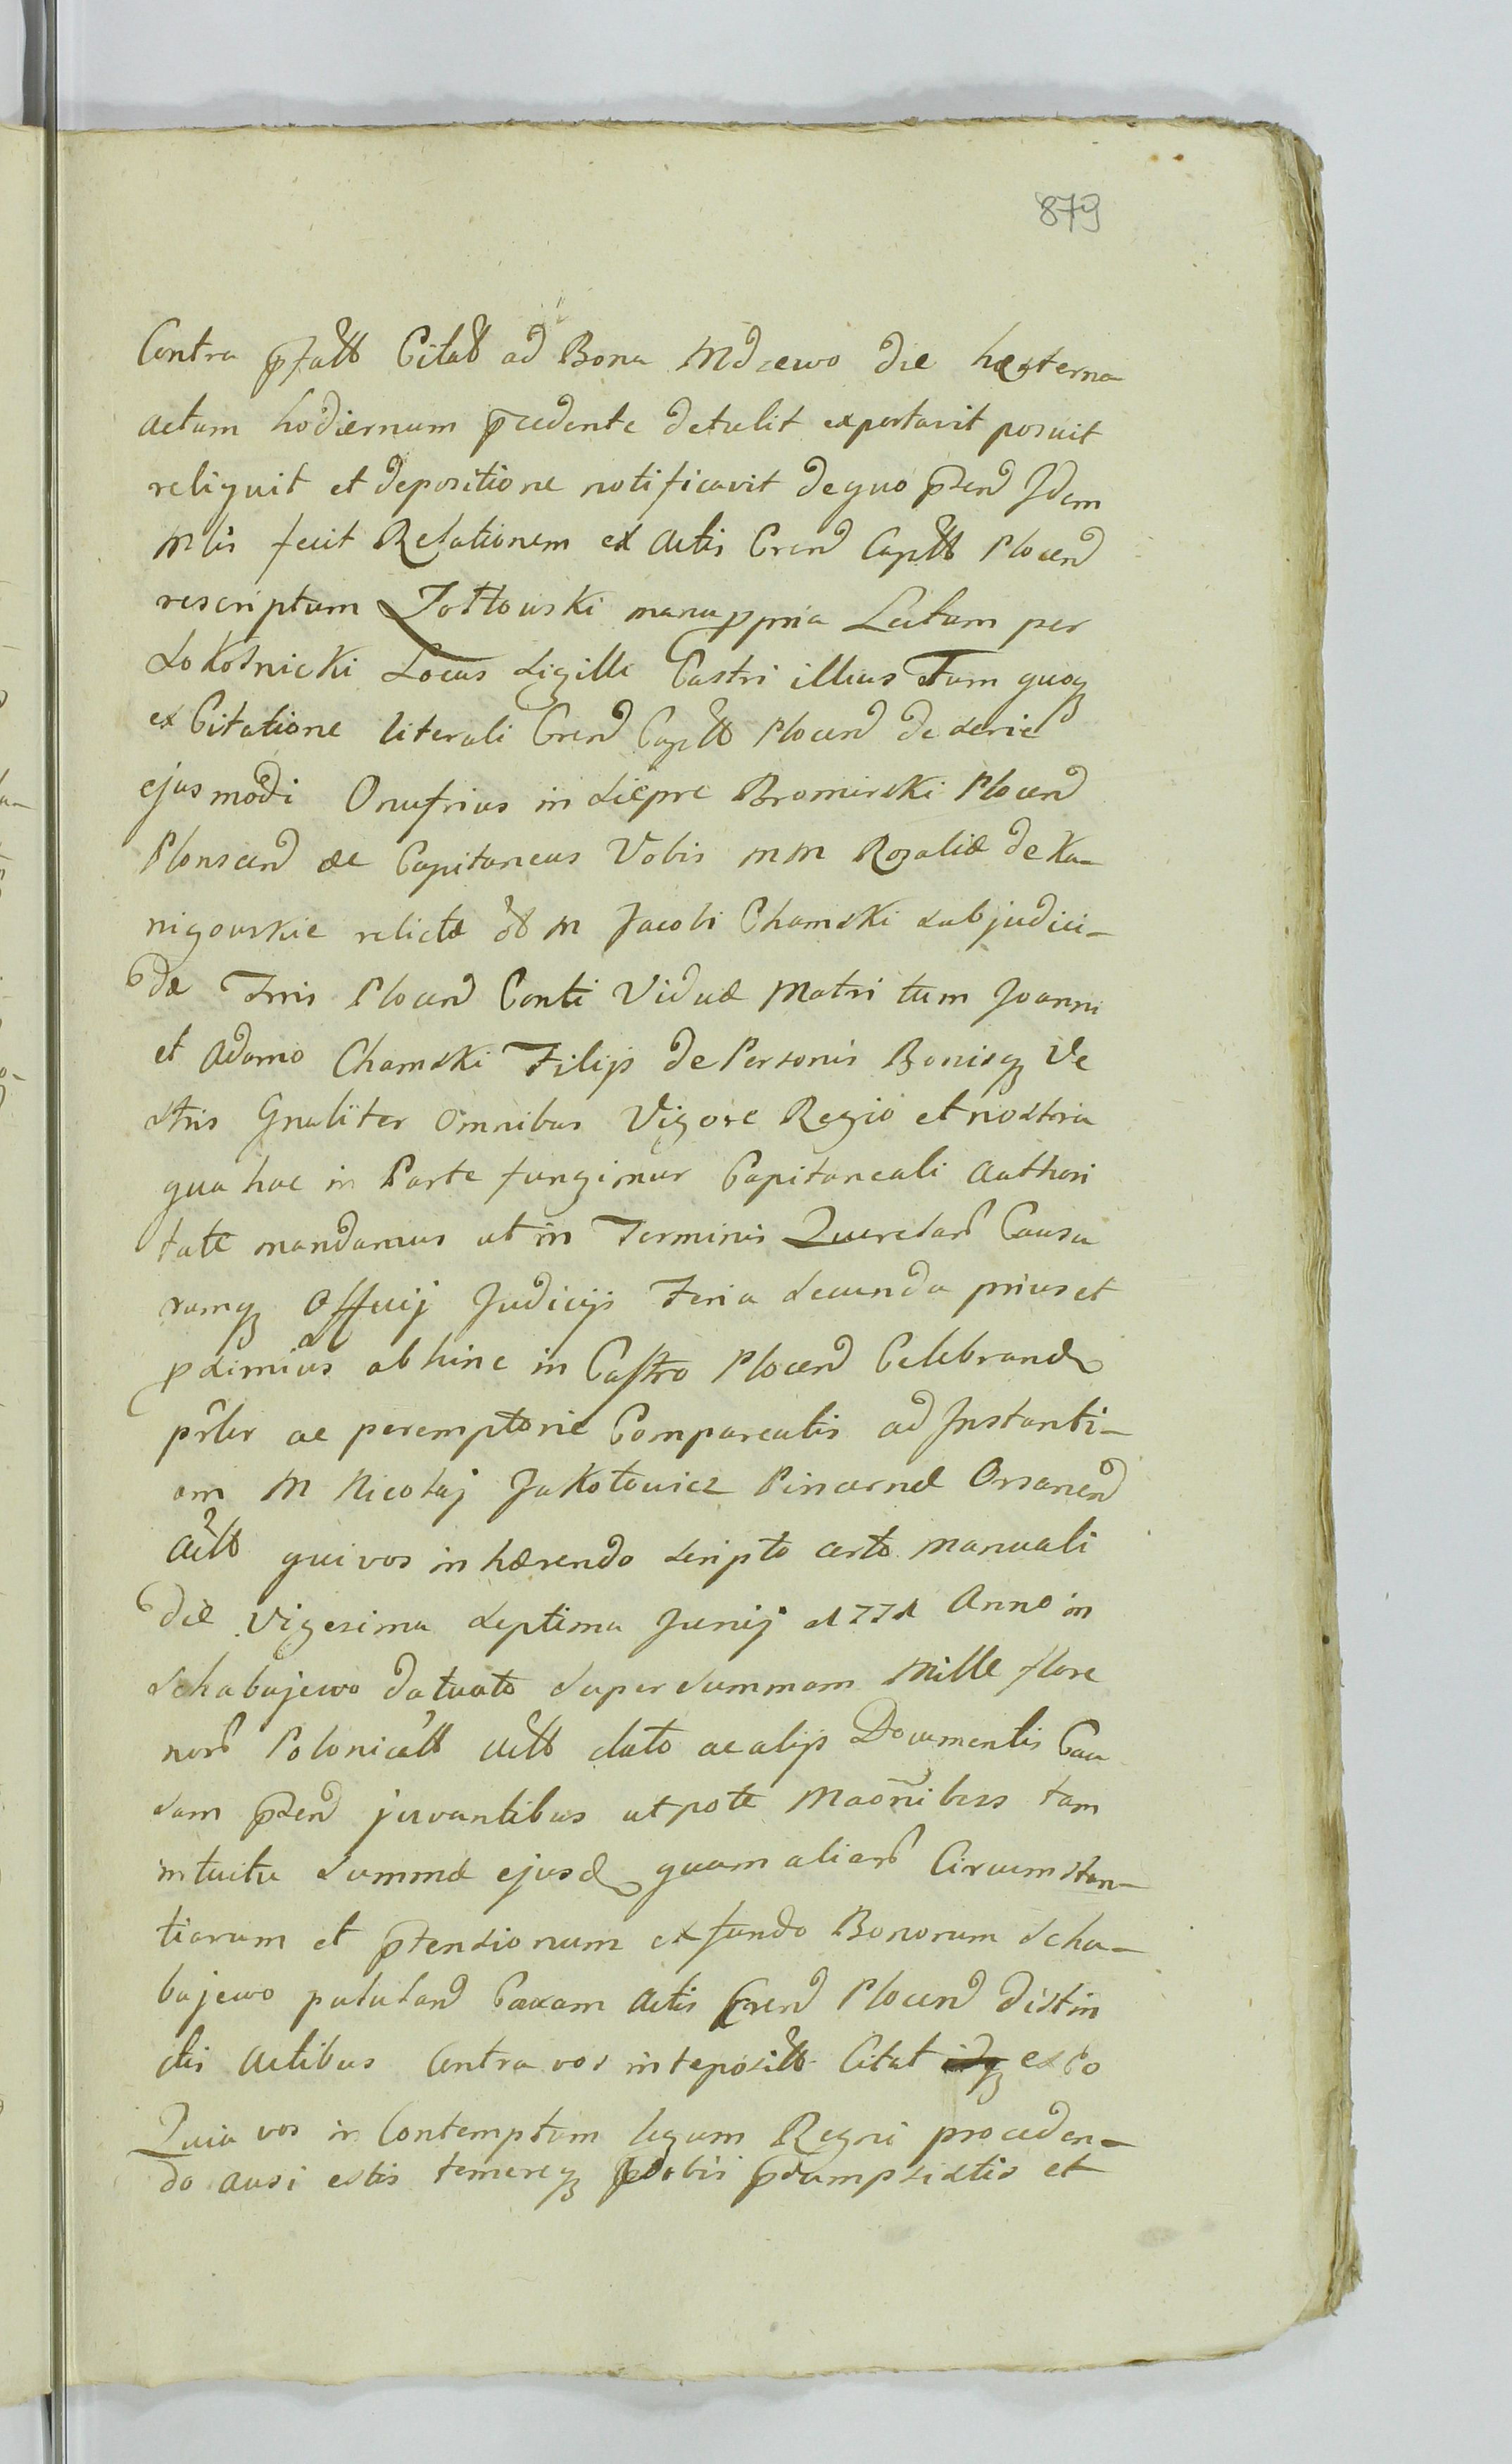 879
Contra pfatt Citat ad Bona Mdzewo die hesterna
actum hodiernum pcedente detulit exportavit posuit
reliquit et depositione notificavit de quo psend Idem
Mlis fecit Relationem ex Actis Crend Captt Plocend
rescriptum Zołtowski manu ppria Lectum per
Sokolnicki Locus Sigilli Castri illius Tum quoq
ex Citatione literali Crend Captt Plocend de serie
ejusmodi Onufrius in Siepre Bromirski Plocend
Plonscend ac Capitaneus Vobis MM Rozaliæ de Ka-
nigowskie relictæ ol M Jacobi Chamski subjudici-
dæ Trris Plocend Conti Viduæ Matri tum Joanni
et Adamo Chamski Filijs de Personis Bonisq Ve
stris Gnaliter omnibus Vigore Regio et nostra
qua hac in Parte fungimur Capitaneali Authori
tate mandamus ut in Terminis Querelar Causa
rumq Officij Judicijs Feria Secunda prius et
pximius abhinc in Castro Plocend Celebrand
prlr ac peremptorie Compareatis ad Instanti-
am M Nicolaj Jakołowicz Pincernæ Orsanend
Actt qui vos inhærendo scripto certo manuali
die Vigesima Septima Junij 1771 Anno in
Schabajewo datuato super Summam Mille flore
nor Polonicatt Actt dato ac alijs Documentis Cau
sam psend juvantibus utpote Maonibus tam
intuitu Summæ ejusd quam aliar Circumstan-
tiarum et ptensionum ex fundo Bonorum Scha-
bajewo pululand Coram Actis Crend Plocend distin
ctis Actibus Contra vos intepositt Citat ex Eo
Quia vos in Contemptum legum Regni proceden-
do ausi estis temereq vobis psumpsistis et